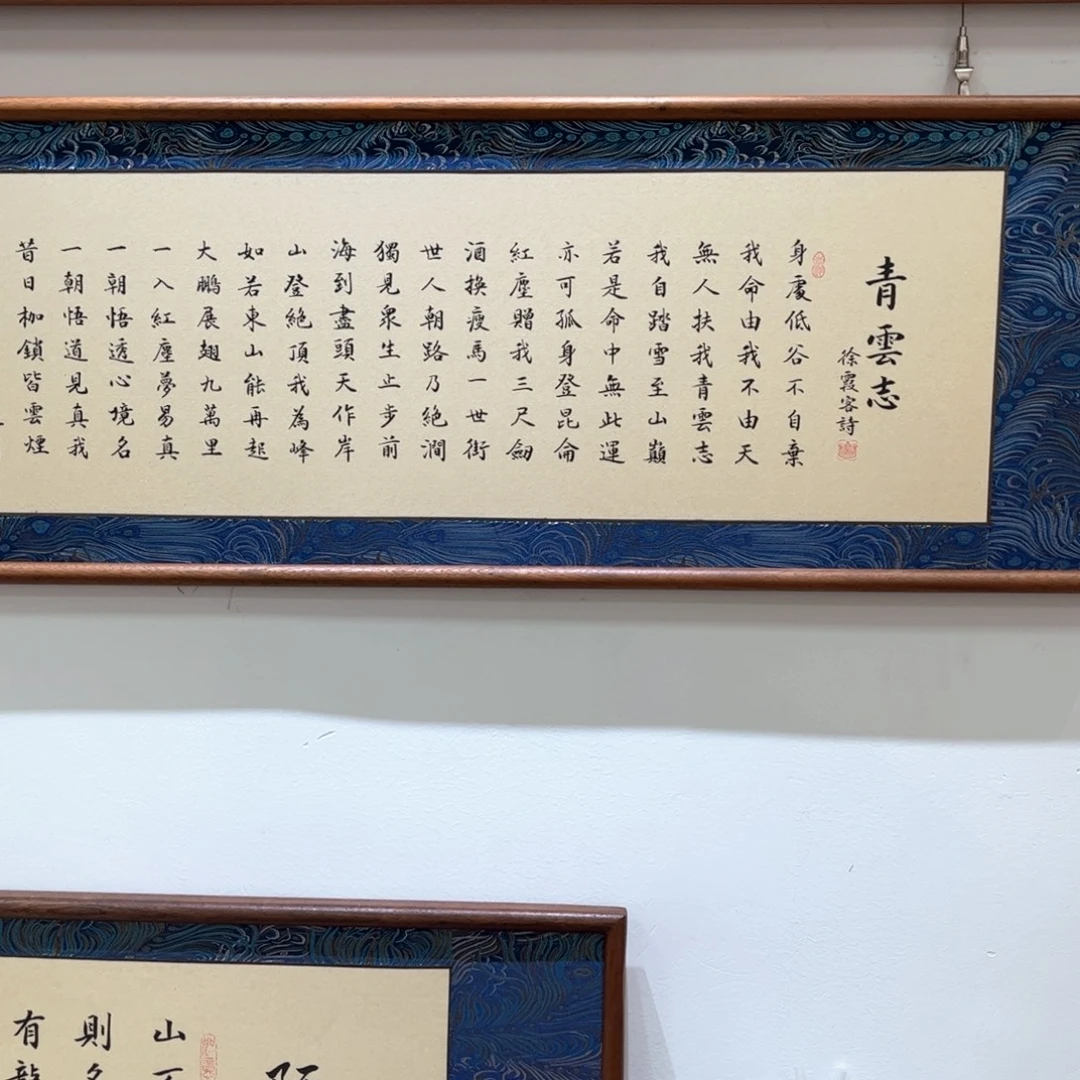 青雲志
徐霞客詩
身處低谷不自棄
我命由我不由天
無人扶我青雲志
我自踏雪至山巔
若是命中無此運
亦可孤身登昆侖
紅塵贈我三尺劍
酒換瘦馬一世街
世人朝路乃絕澗
獨見衆生止步前
海到盡頭天作岸
山登絕頂我為峰
如若東山能再起
大鵬展翅九萬里
一入紅塵夢易真
一朝悟透心境名
一朝悟道見真我
昔日枷鎖皆雲煙
山不
則名
有龍